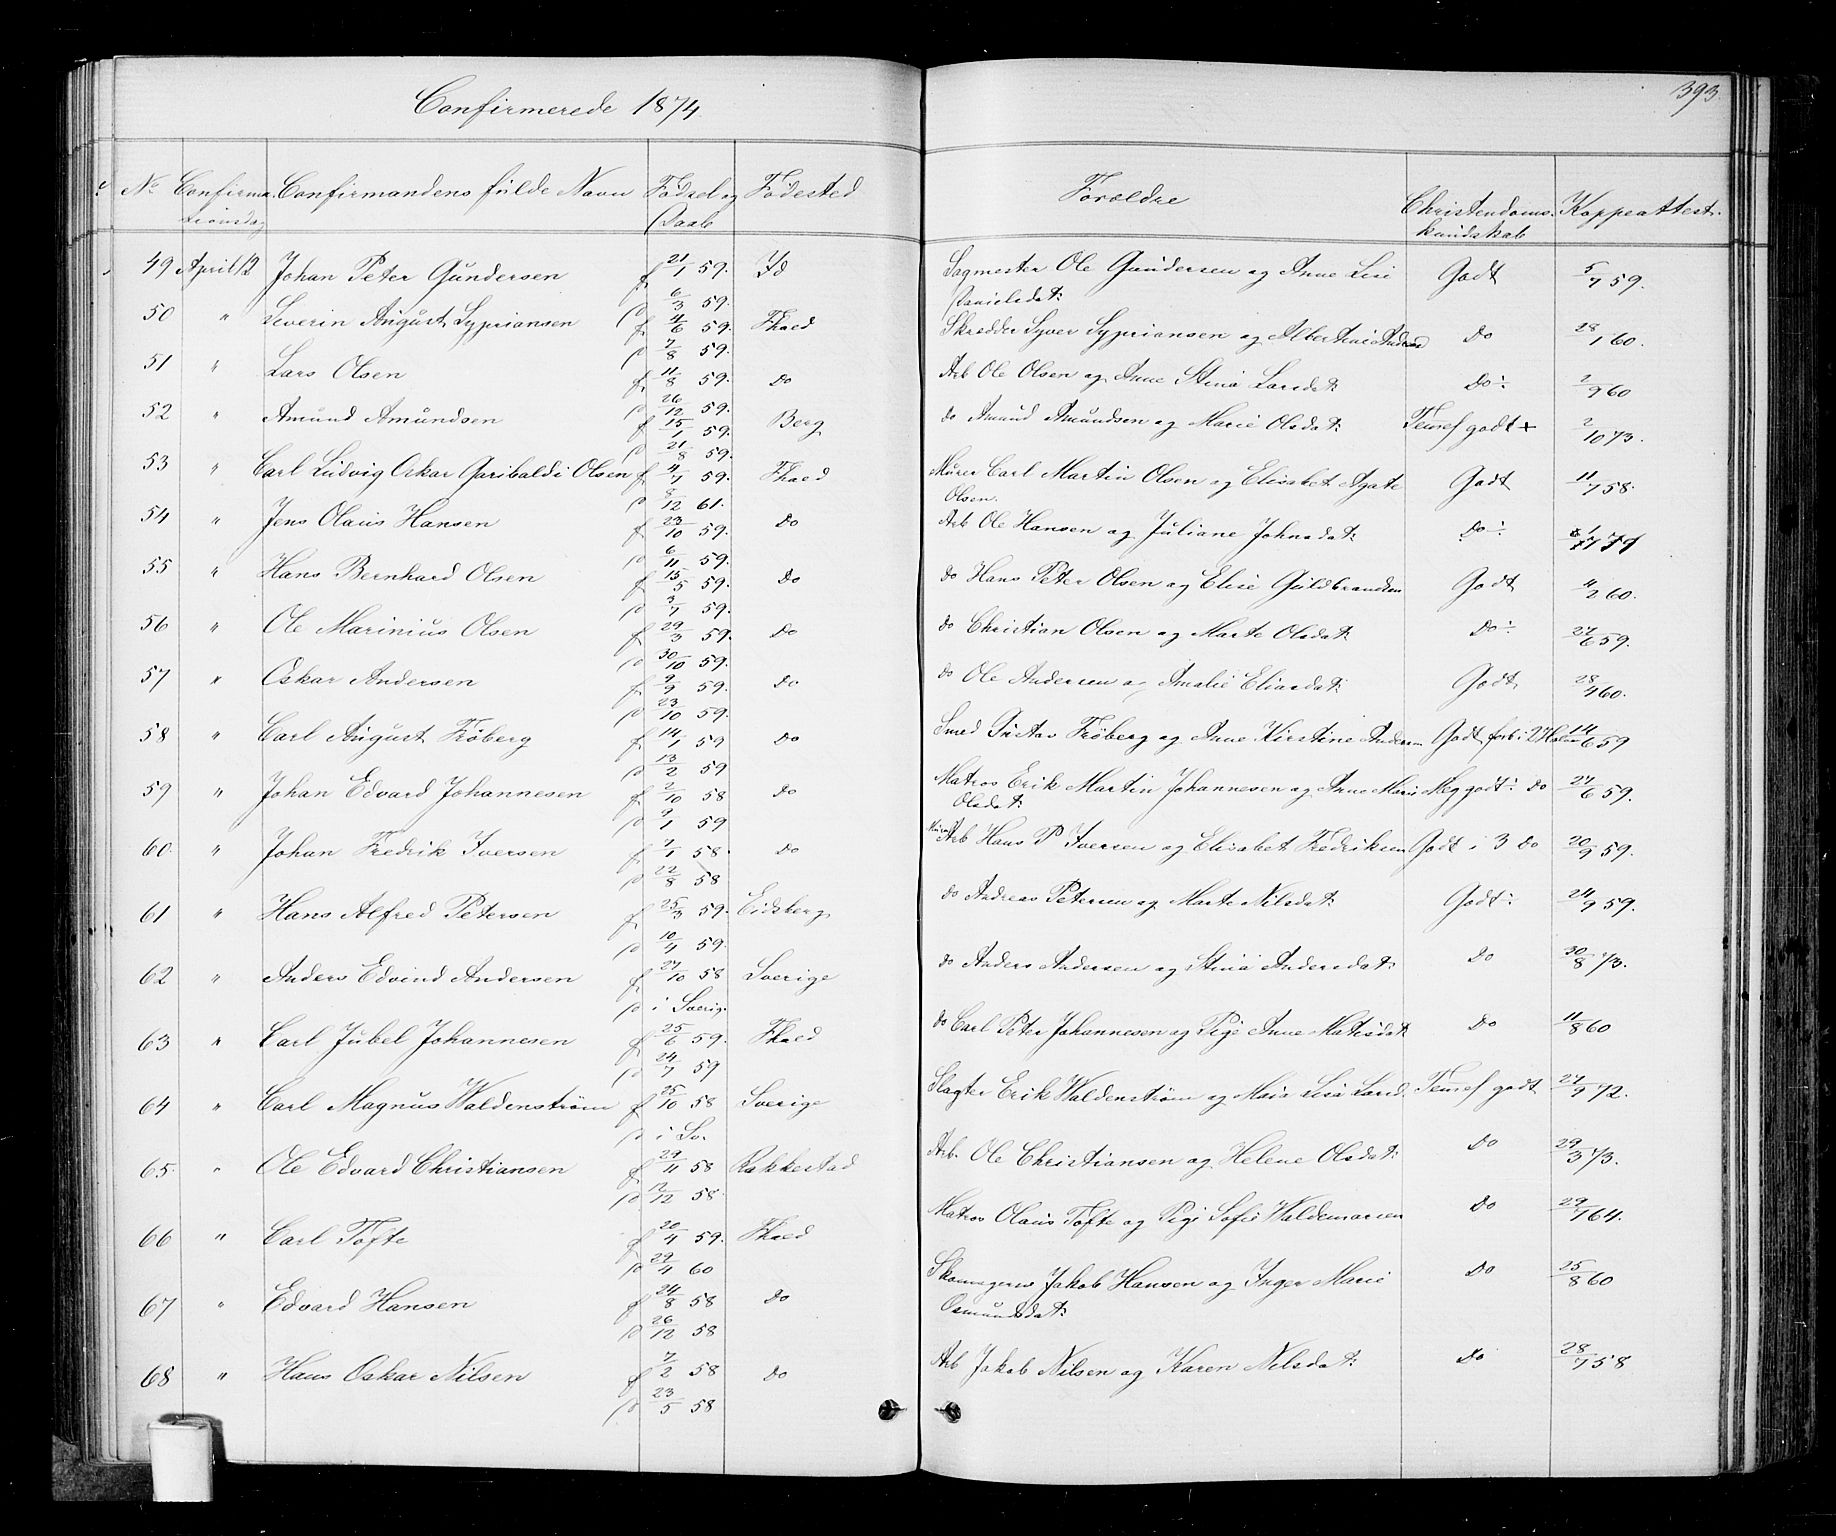 Confirmerede 1874.
393
No Confirma- Confirmandens fulde Navn Fødsel og Fødested Forældre Christendoms- Koppeattest.
tionsdag Daab kundskab
49 April 12 Johan Peter Gundersen f 21/1 59. Id Sagmester Ole Gundersen og Anne Lise Godt 5/7 59.
D 6/3 59. Danielsdat:
50 " Severin August Sypriansen f 4/6 59. Fhald Skredder Syver Sypriansen og Albertine Anders Do 28/1 60.
D 7/8 59.
51 " Lars Olsen f 11/8 59. Do Arb Ole Olsen og Anne Stina Larsdat: Do÷ 2/9 60
D 26/12 59.
52 " Amund Amundsen f 15/1 59. Berg do Amund Amundsen og Marie Olsdat: Temel godt + 2/10 73.
D 21/8 59.
53 " Carl Ludvig Oskar Garibaldi Olsen f 4/7 59. Fhald Murer Carl Martin Olsen og Elisabet Agate Godt 11/7 58.
D 8/12 61. Olsen.
54 " Jens Olaus Hansen f 23/10 59. Do Arb Ole Hansen og Juliane Johnsdat: Do÷
D 6/11 59.
55 " Hans Bernhard Olsen f 15/5 59. Do do Hans Peter Olsen og Elise Guldbrandsen Godt 11/2 60.
D 3/7 59.
56 " Ole Marinius Olsen f 29/3 59. Do do Christian Olsen og Marte Olsdat: Do÷ 27/6 59.
D 30/10 59.
57 " Oskar Andersen f 9/9 59. Do do Ole Andersen og Amalie Eliasdat: Godt 28/9 60.
D 23/10 59.
58 " Carl August Frøberg f 14/1 59 Do Smed Gustav Frøberg og Anne Kirstine Andersen Godt forb i 2 Holm 14/6 59
D 13/2 59
59 " Johan Edvard Johannesen f 2/10 58 Do Matros Erik Martin Johannesen og Anne Marie Meg godt: do 27/6 59.
D 9/1 59 Olsdat:
60. " Johan Fredrik Iversen f 7/1 58. Do Arb Hans P Iversen og Elisabet Fredriksen Godt i 3 do 20/9 59.
D 22/8 58
61 " Hans Alfred Petersen f 25/3 59. Eidsberg do Andreas Petersen og Marte Nilsdat: Godt: 24/9 59.
D 10/4 59.
62 " Anders Edvind Andersen f 27/10 58 Sverige do Anders Andersen og Stina Andersdat: Do 30/8 73.
D i Sverig
63 " Carl Jubel Johannesen f 25/6 59. Fhald do Carl Peter Johannesen og Pige Anne Matisdat Do 11/8 60
D 24/7 59
64 " Carl Magnus Waldenstrøm f 25/10 58 Sverige Slagter Erik Waldenstrøm og Maja Lisa Larsd. Temel godt 27/9 72.
D i Sv.
65. " Ole Edvard Christiansen f 29/11 58 Rakkestad Arb. Ole Christiansen og Helene Olsdat: Do 29/3 73.
D 12/12 58.
66 " Carl Tofte f 20/4 59. Fhald Matros Olaus Tofte og Pige Sofie Waldemarsen Do 29/7 64.
D 29/4 60
67 " Edvard Hansen f 24/8 58 Do Skomagersv Jakob Hansen og Inger Marie Do 25/8 60
D 26/12 58 Osmundsdat:
68 " Hans Oskar Nilsen f 7/2 58 Do Arb Jakob Nilsen og Karen Nilsdat: Do 28/7 58
D 23/5 58